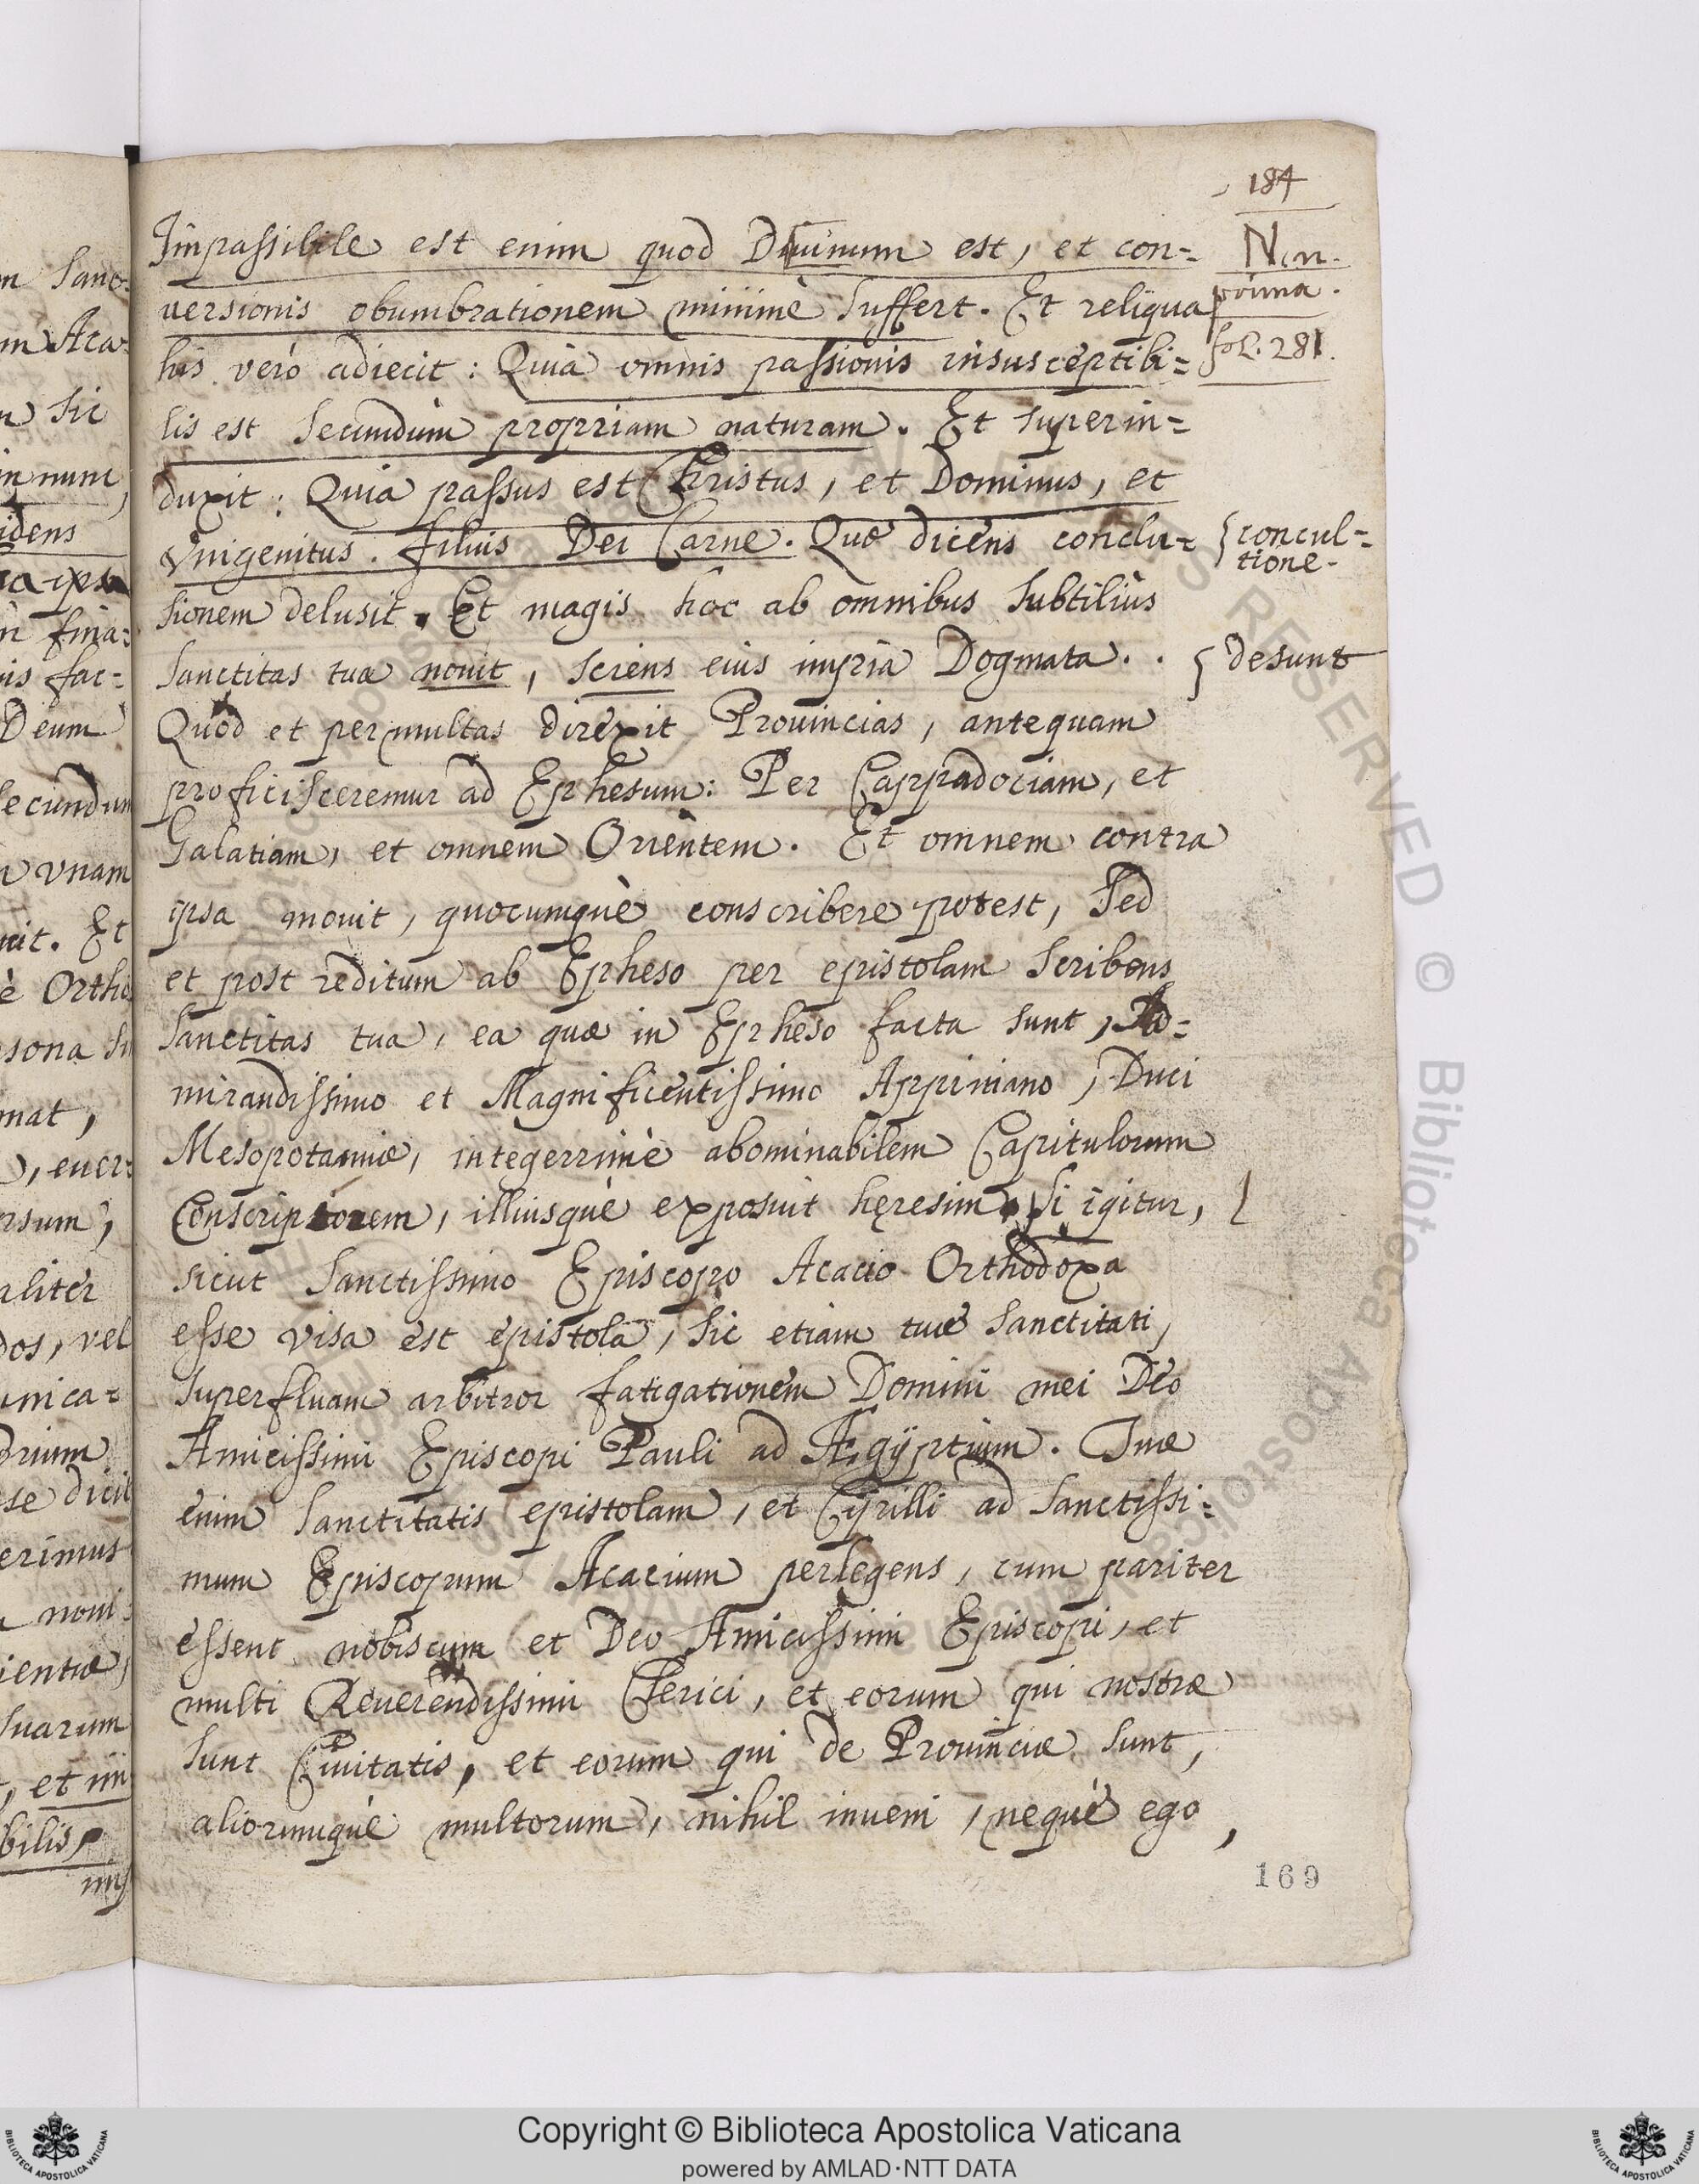 184
Impassibile est enim quod Diuinum est, et con=
Non.
uersionis obumbrationem minimè suffert. Et reliqua
prima.
his verò adiecit: Quia omnis passionis insusceptibi=
fol. 281.
lis est secundùm propriam naturam. Et superin=
duxit: Quia passus est Christus, et Dominus, et
Vnigenitus. filius Dei Carne. Quæ dicens conclu=
concul=
tione.
sionem delusit. Et magis hoc ab omnibus subtiliùs
sanctitas tua nouit, sciens eius impia Dogmata..
desunt
Quòd et per multas direxit Prouincias, antequam
proficisceremur ad Ephesum: Per Cappadociam, et
Galatiam, et omnem Orientem. Et omnem contra
ipsa mouit, quocumquè conscribere potest, Sed
et post reditum ab Epheso per epistolam scribens
sanctitas tua, ea quæ in Epheso facta sunt, Ad=
mirandissimo et Magnificentissimo Appiniano, Duci
Mesopotamiæ, integerrimè abominabilem Capitulorum
Conscriptorem, illiusquè exposuit hęresim. Si igitur,
sicut Sanctissimo Episcopo Acacio Orthodoxa
esse visa est epistola, sic etiam tuæ sanctitati,
superfluam arbitror fatigationem Domini mei Deo
Amicissimi Episcopi Pauli ad Ægÿptium. Tuæ
enim Sanctitatis epistolam, et Cÿrilli ad Sanctissi=
mum Episcopum Acacium perlegens, cum pariter
essent nobiscum et Deo Amicissimi Episcopi, et
multi Reuerendissimi Clerici, et eorum qui nostræ
sunt Ciuitatis, et eorum qui de Prouinciæ sunt,
aliorumquè multorum, nihil inueni, nequè ego,
169
m Sanc=
m Aca=
n sic
idens
uis fac=
Deum
secundum
n vnam
è Ortho
mat,
aliter
dos, vel
unica=
drium
se dicit
erimus
suarum
, et im
bilis,
© Biblioteca Apostolica
Copyright © Biblioteca Apostolica Vaticana
powered by AMLAD·NTT DATA
BIBLIOTECA APOSTOLICA VATICANA
BIBLIOTECA APOSTOLICA VATICANA